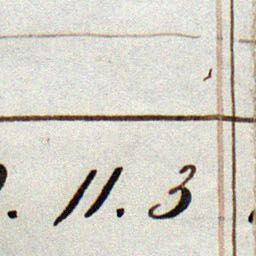 . 11. 3